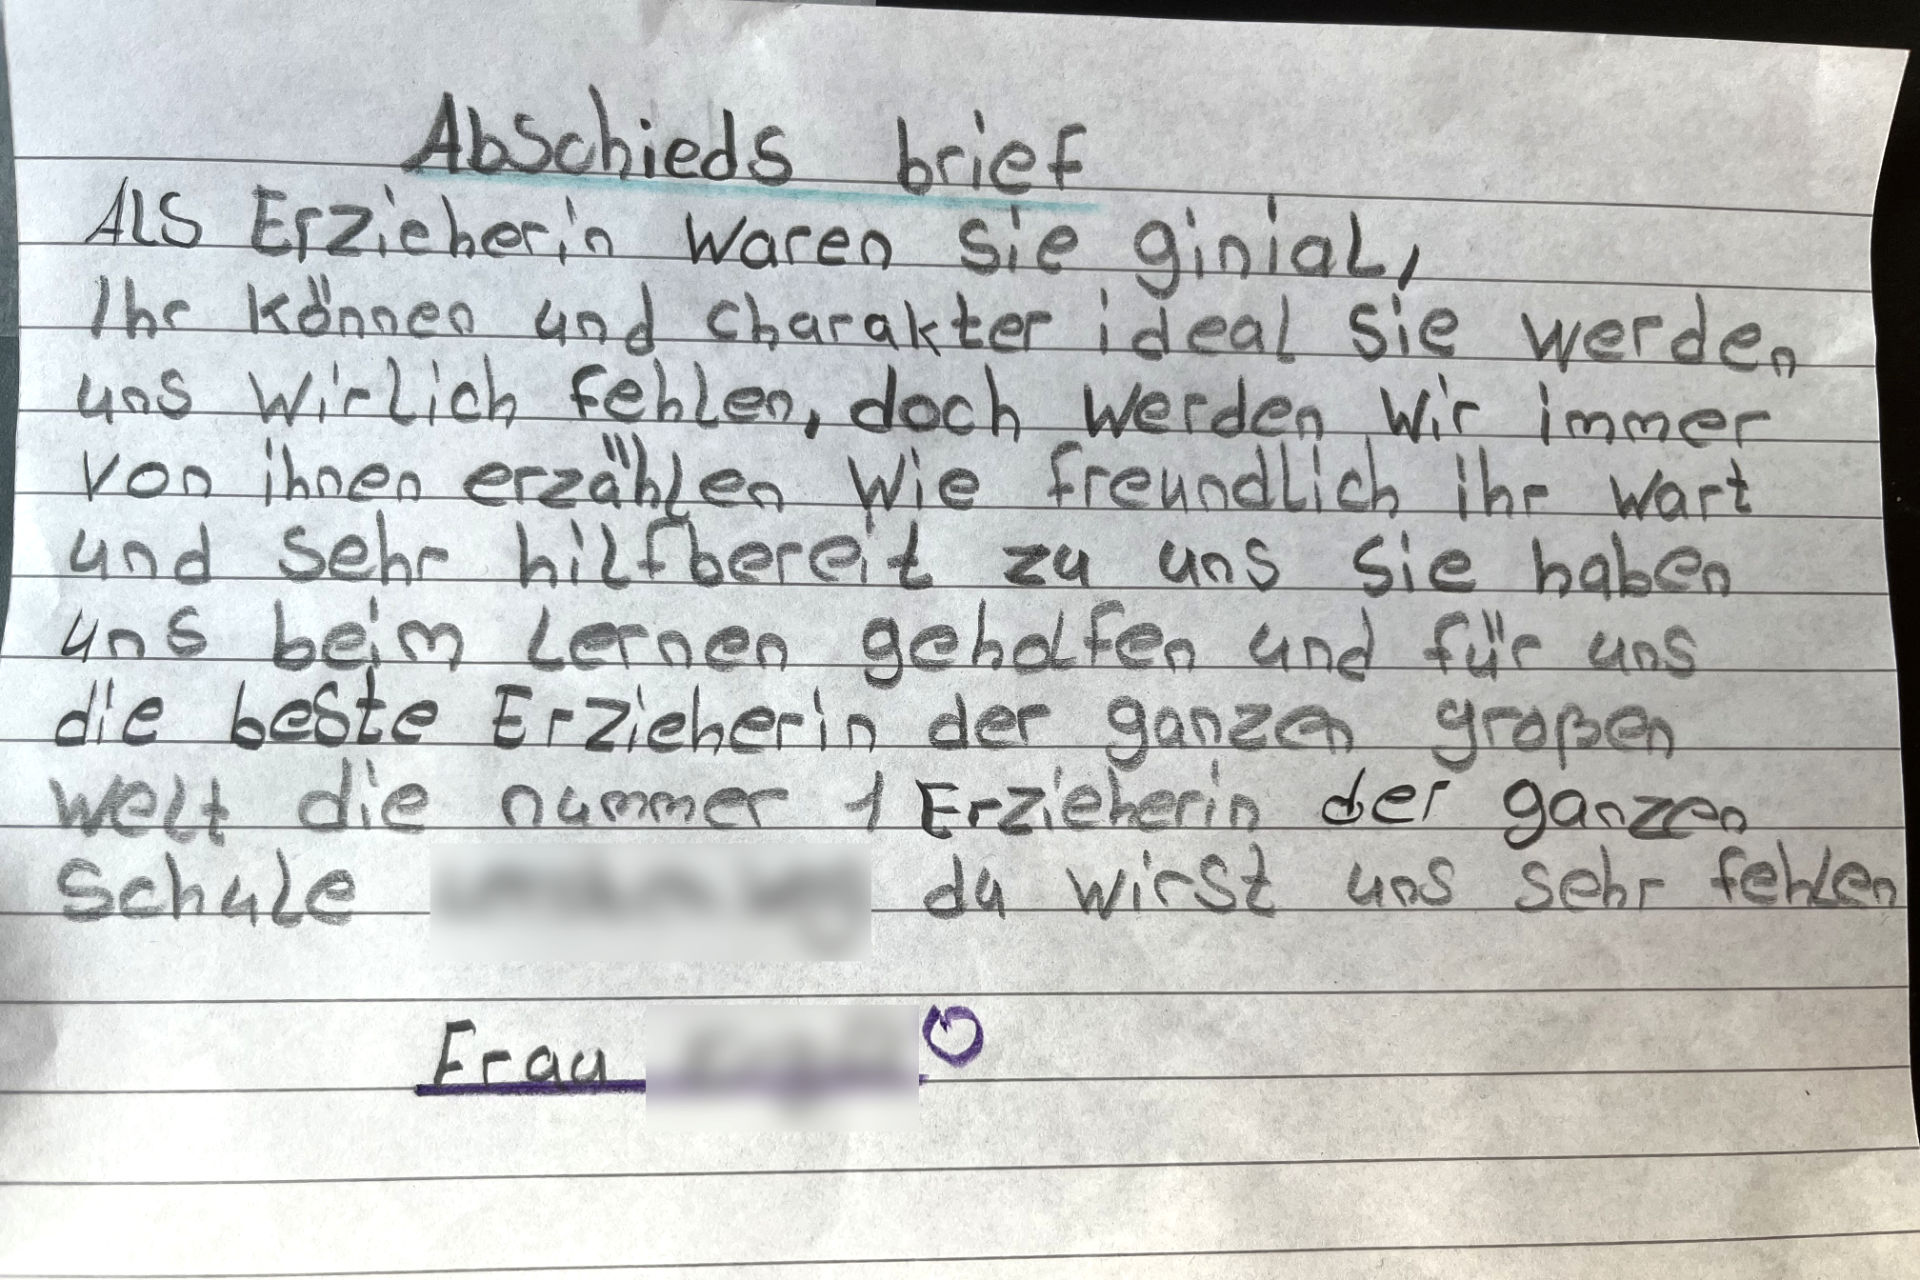 Abschieds brief
Als Erzieherin waren sie ginial,
Ihr können und charakter ideal sie werden
uns wirlich fehlen, doch werden wir immer
von ihnen erzählen wie freundlich ihr wart
und sehr hilfbereit zu uns sie haben
uns beim lernen geholfen und für uns
die beste Erzieherin der ganzen großen
welt die nummer 1 Erzieherin der ganzen
schule du wirst uns sehr fehlen
Frau